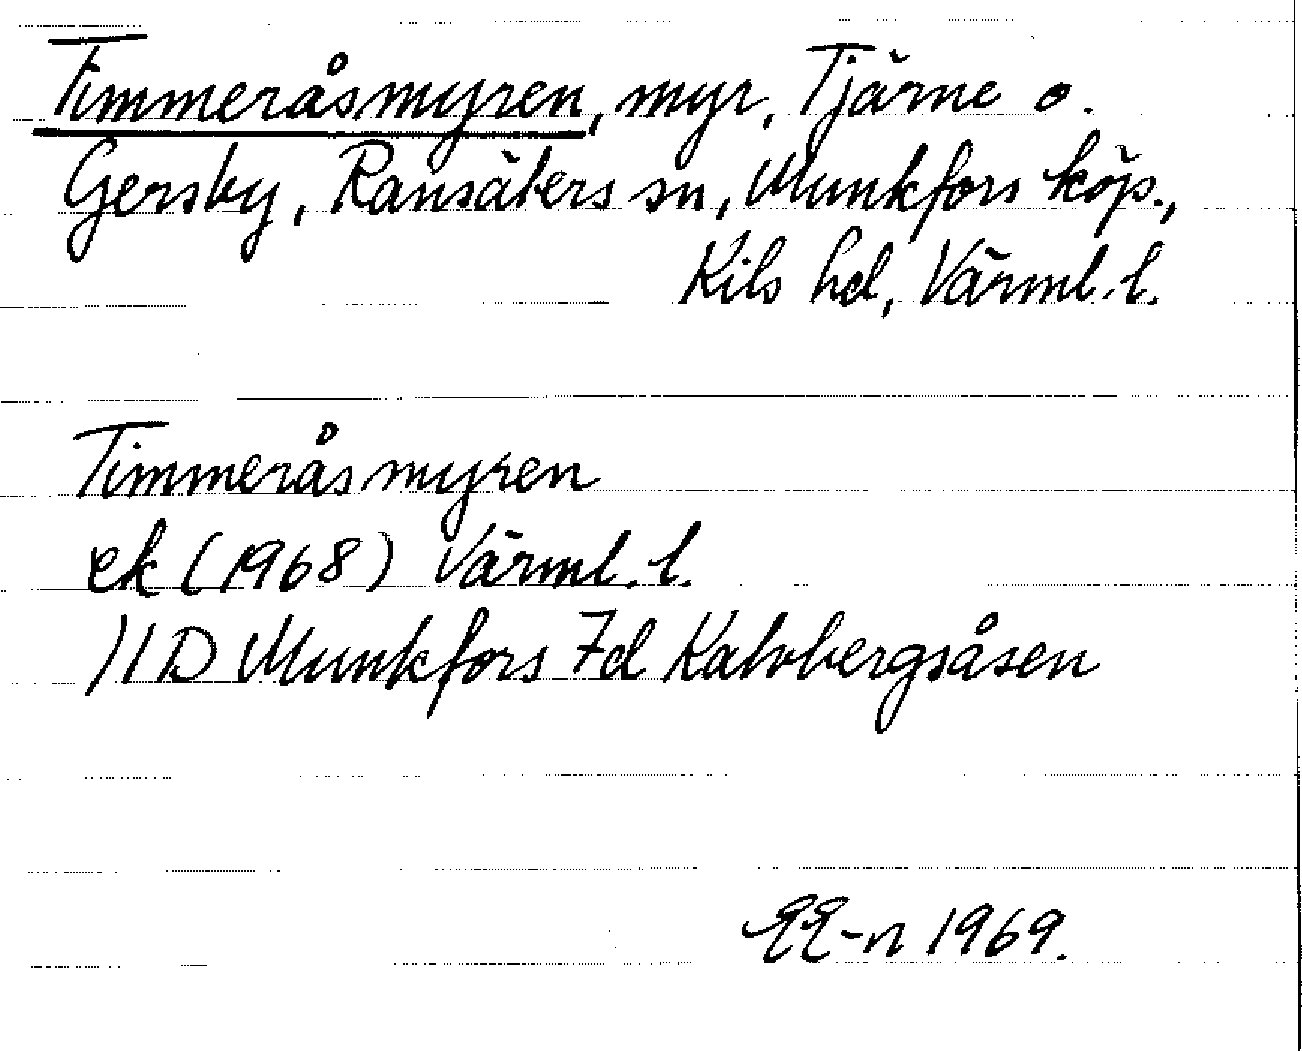 Timmeråsmyren, myr, Tjärne o.
Gersby, Ransäters sn, Munkfors köp.,
Kils hd, Värml. l.
Timmeråsmyren
ek (1968) Värml. l.
11D Munkfors 7d Kalvbergsåsen
EE-n 1969.